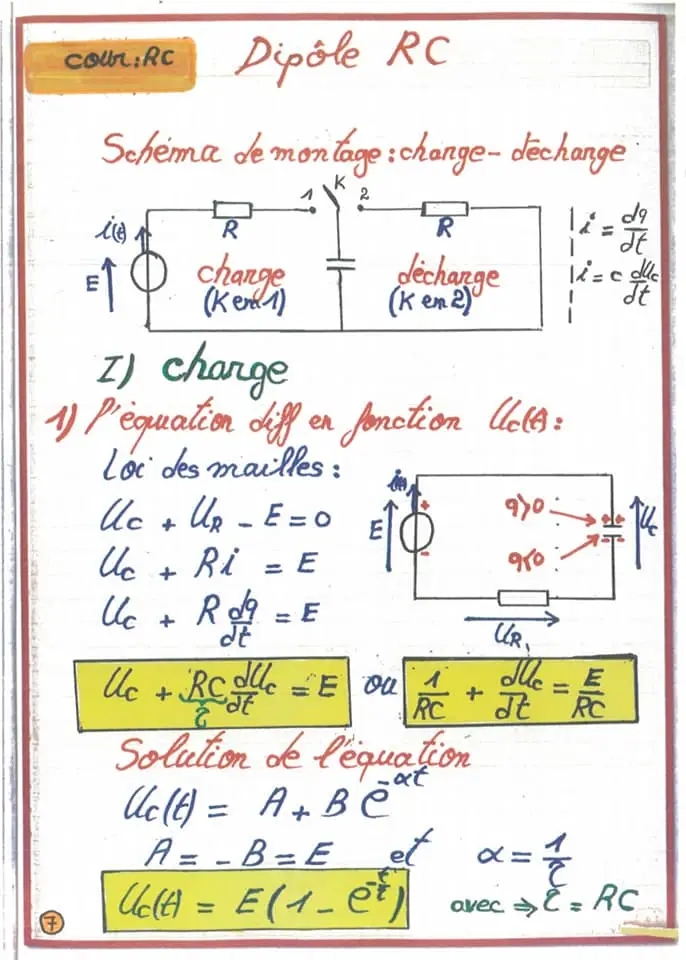 cour: RC
Dipôle RC
Schéma de montage: change - déchange
1 K 2
i(t) R R
E
change déchange
(K en 1) (K en 2)
i = dq/dt
i = c dUc/dt
I) change
1) l'équation diff en fonction Uc(t):
Loi des mailles:
Uc + UR - E = 0
Uc + Ri = E
Uc + R dq/dt = E
i(t)
E
+
-
q>0
q<0
++
--
Uc
UR
Uc + RC dUc/dt = E ou 1/RC + dUc/dt = E/RC
τ
Solution de l'équation
Uc(t) = A + B e^-αt
A = - B = E et α = 1/τ
Uc(t) = E(1 - e^-t/τ) avec ⇒ τ = RC
7